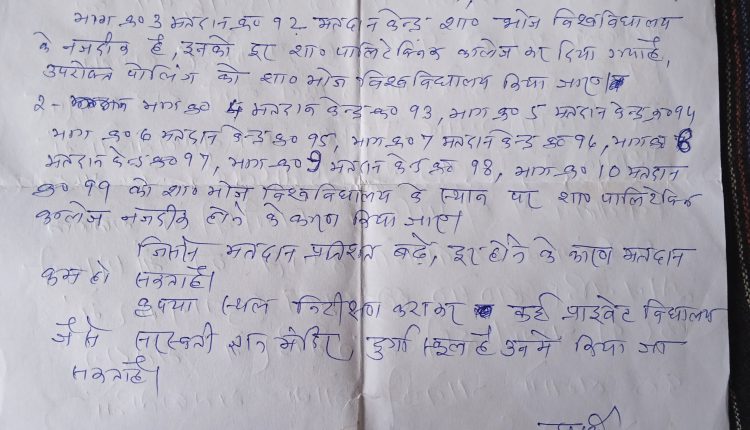 भाग क्र० 3 मतदान क्र० 92 मतदान केन्द्र शा० भोज विश्वविद्यालय
के नजदीक है, इनको दूर शा० पालिटेक्निक कालेज कर दिया गया है,
उपरोक्त पोलिंग को शा० भोज विश्वविद्यालय किया जाए।
2- भाग क्र० 4 मतदान केन्द्र क्र० 93, भाग क्र० 5 मतदान केन्द्र क्र० 94
भाग क्र० 6 मतदान केन्द्र क्र० 95, भाग क्र० 7 मतदान केन्द्र क्र० 96, भाग क्र० 8
मतदान केन्द्र क्र० 97, भाग क्र० 9 मतदान केन्द्र क्र० 98, भाग क्र० 10 मतदान
क्र० 99 को शा० भोज विश्वविद्यालय के स्थान पर शा० पालिटेक्निक
कालेज नजदीक होने के कारण किया जाए।
जिससे मतदान प्रतिशत बढ़े, दूर होने के कारण मतदान
कम हो सकता है।
कृपया स्थल निरीक्षण कराकर कई प्राइवेट विद्यालय
जैसे सरस्वती मंदिर, दुर्गा स्कूल है उनमे किया जा
सकता है।